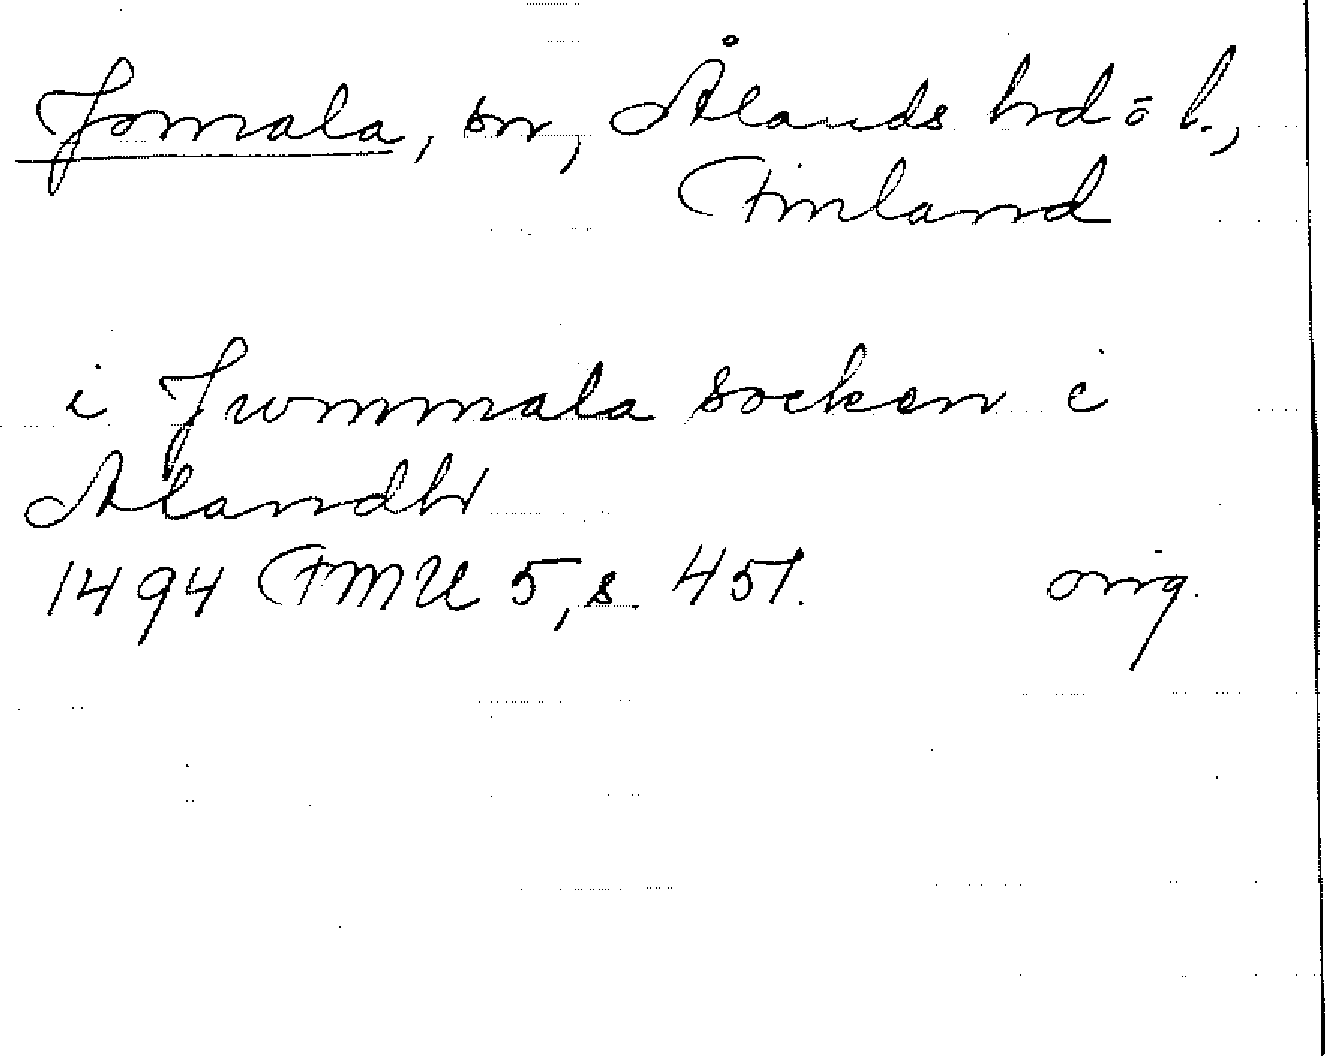 Jomala, sn, Ålands hd o l.,
Finland
i Jwmmala socken i
Alandh
1494 FMU 5, s. 451. orig.